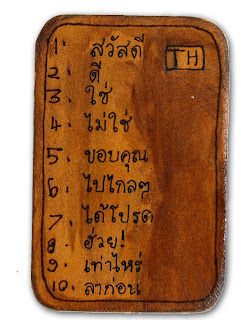 1. สวัสดี TH
2. ดี
3. ใช่
4. ไม่ใช่
5. ขอบคุณ
6. ไปไกลๆ
7. ได้โปรด
8. ฮ่วย!
9. เท่าไหร่
10. ลาก่อน